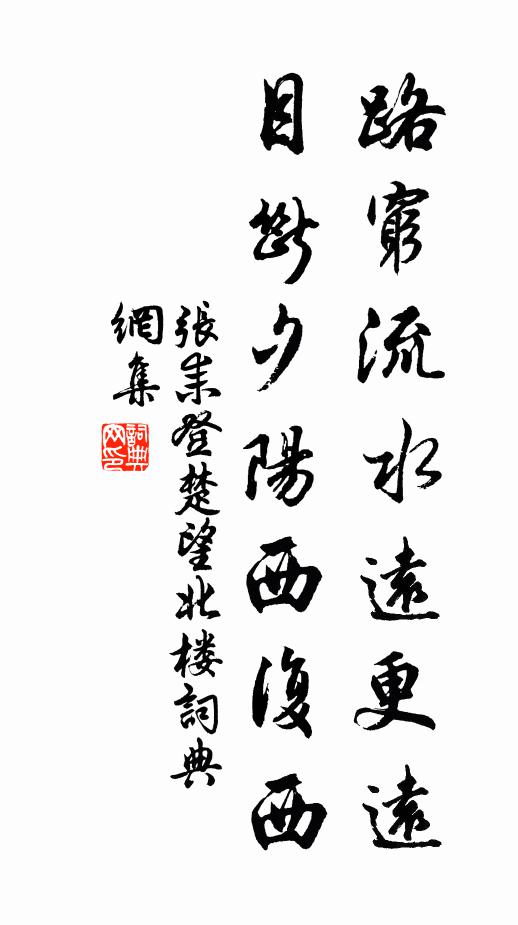 路窮流水遠更遠
目斷夕陽西復西
張耒登楚望北楼詞典
網集
詞典
网印